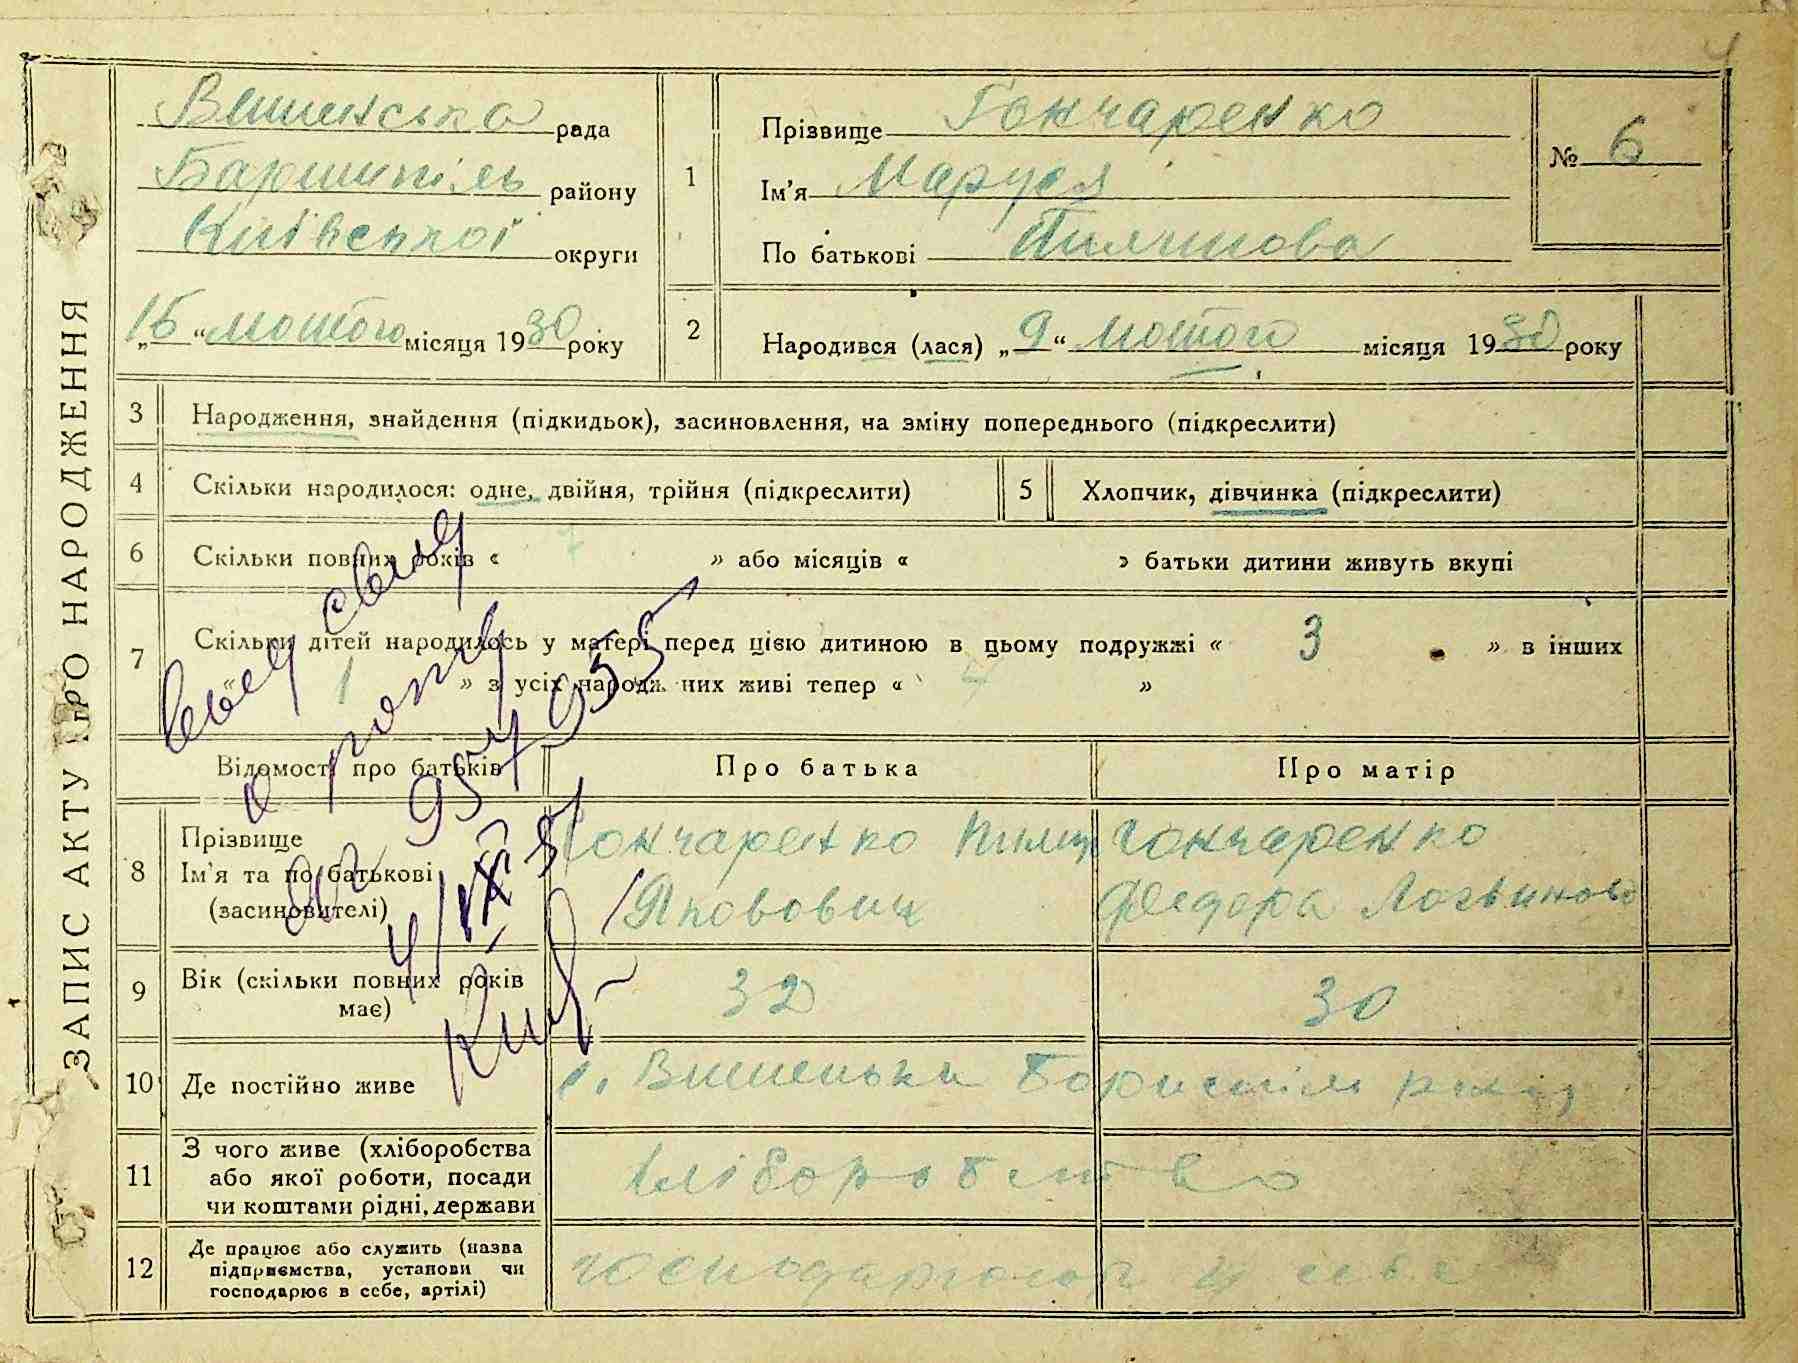 ЗАПИС АКТУ ПРО НАРОДЖЕННЯ
Вишенська рада
Баришпіль району
Київської округи
„15“ лютого місяця 1930 року
1
Прізвище Гончаренко
Ім'я Маруся
По батькові Пилипова
№ 6
2
Народився (лася) „9“ лютого місяця 1930 року
3 Народження, знайдення (підкидьок), засиновлення, на зміну попереднього (підкреслити)
4 Скільки народилося: одне, двійня, трійня (підкреслити)
5 Хлопчик, дівчинка (підкреслити)
6 Скільки повних років « 7 » або місяців « » батьки дитини живуть вкупі
7 Скільки дітей народилось у матері перед цією дитиною в цьому подружжі « 3 » в інших
« 1 » з усіх народж них живі тепер « »
Відомості про батьків
Про батька
Про матір
8 Прізвище
Ім'я та по батькові
(засиновителі)
Гончаренко Пилип
Якович
Гончаренко
Федора Логвинова
9 Вік (скільки повних років
має)
32
30
10 Де постійно живе
с. Вишеньки Бориспіль району
11 З чого живе (хліборобства
або якої роботи, посади
чи коштами рідні, держави
хліборобство
12 Де працює або служить (назва
підприємства, установи чи
господарює в себе, артілі)
господарюють у себе
4/IX 57